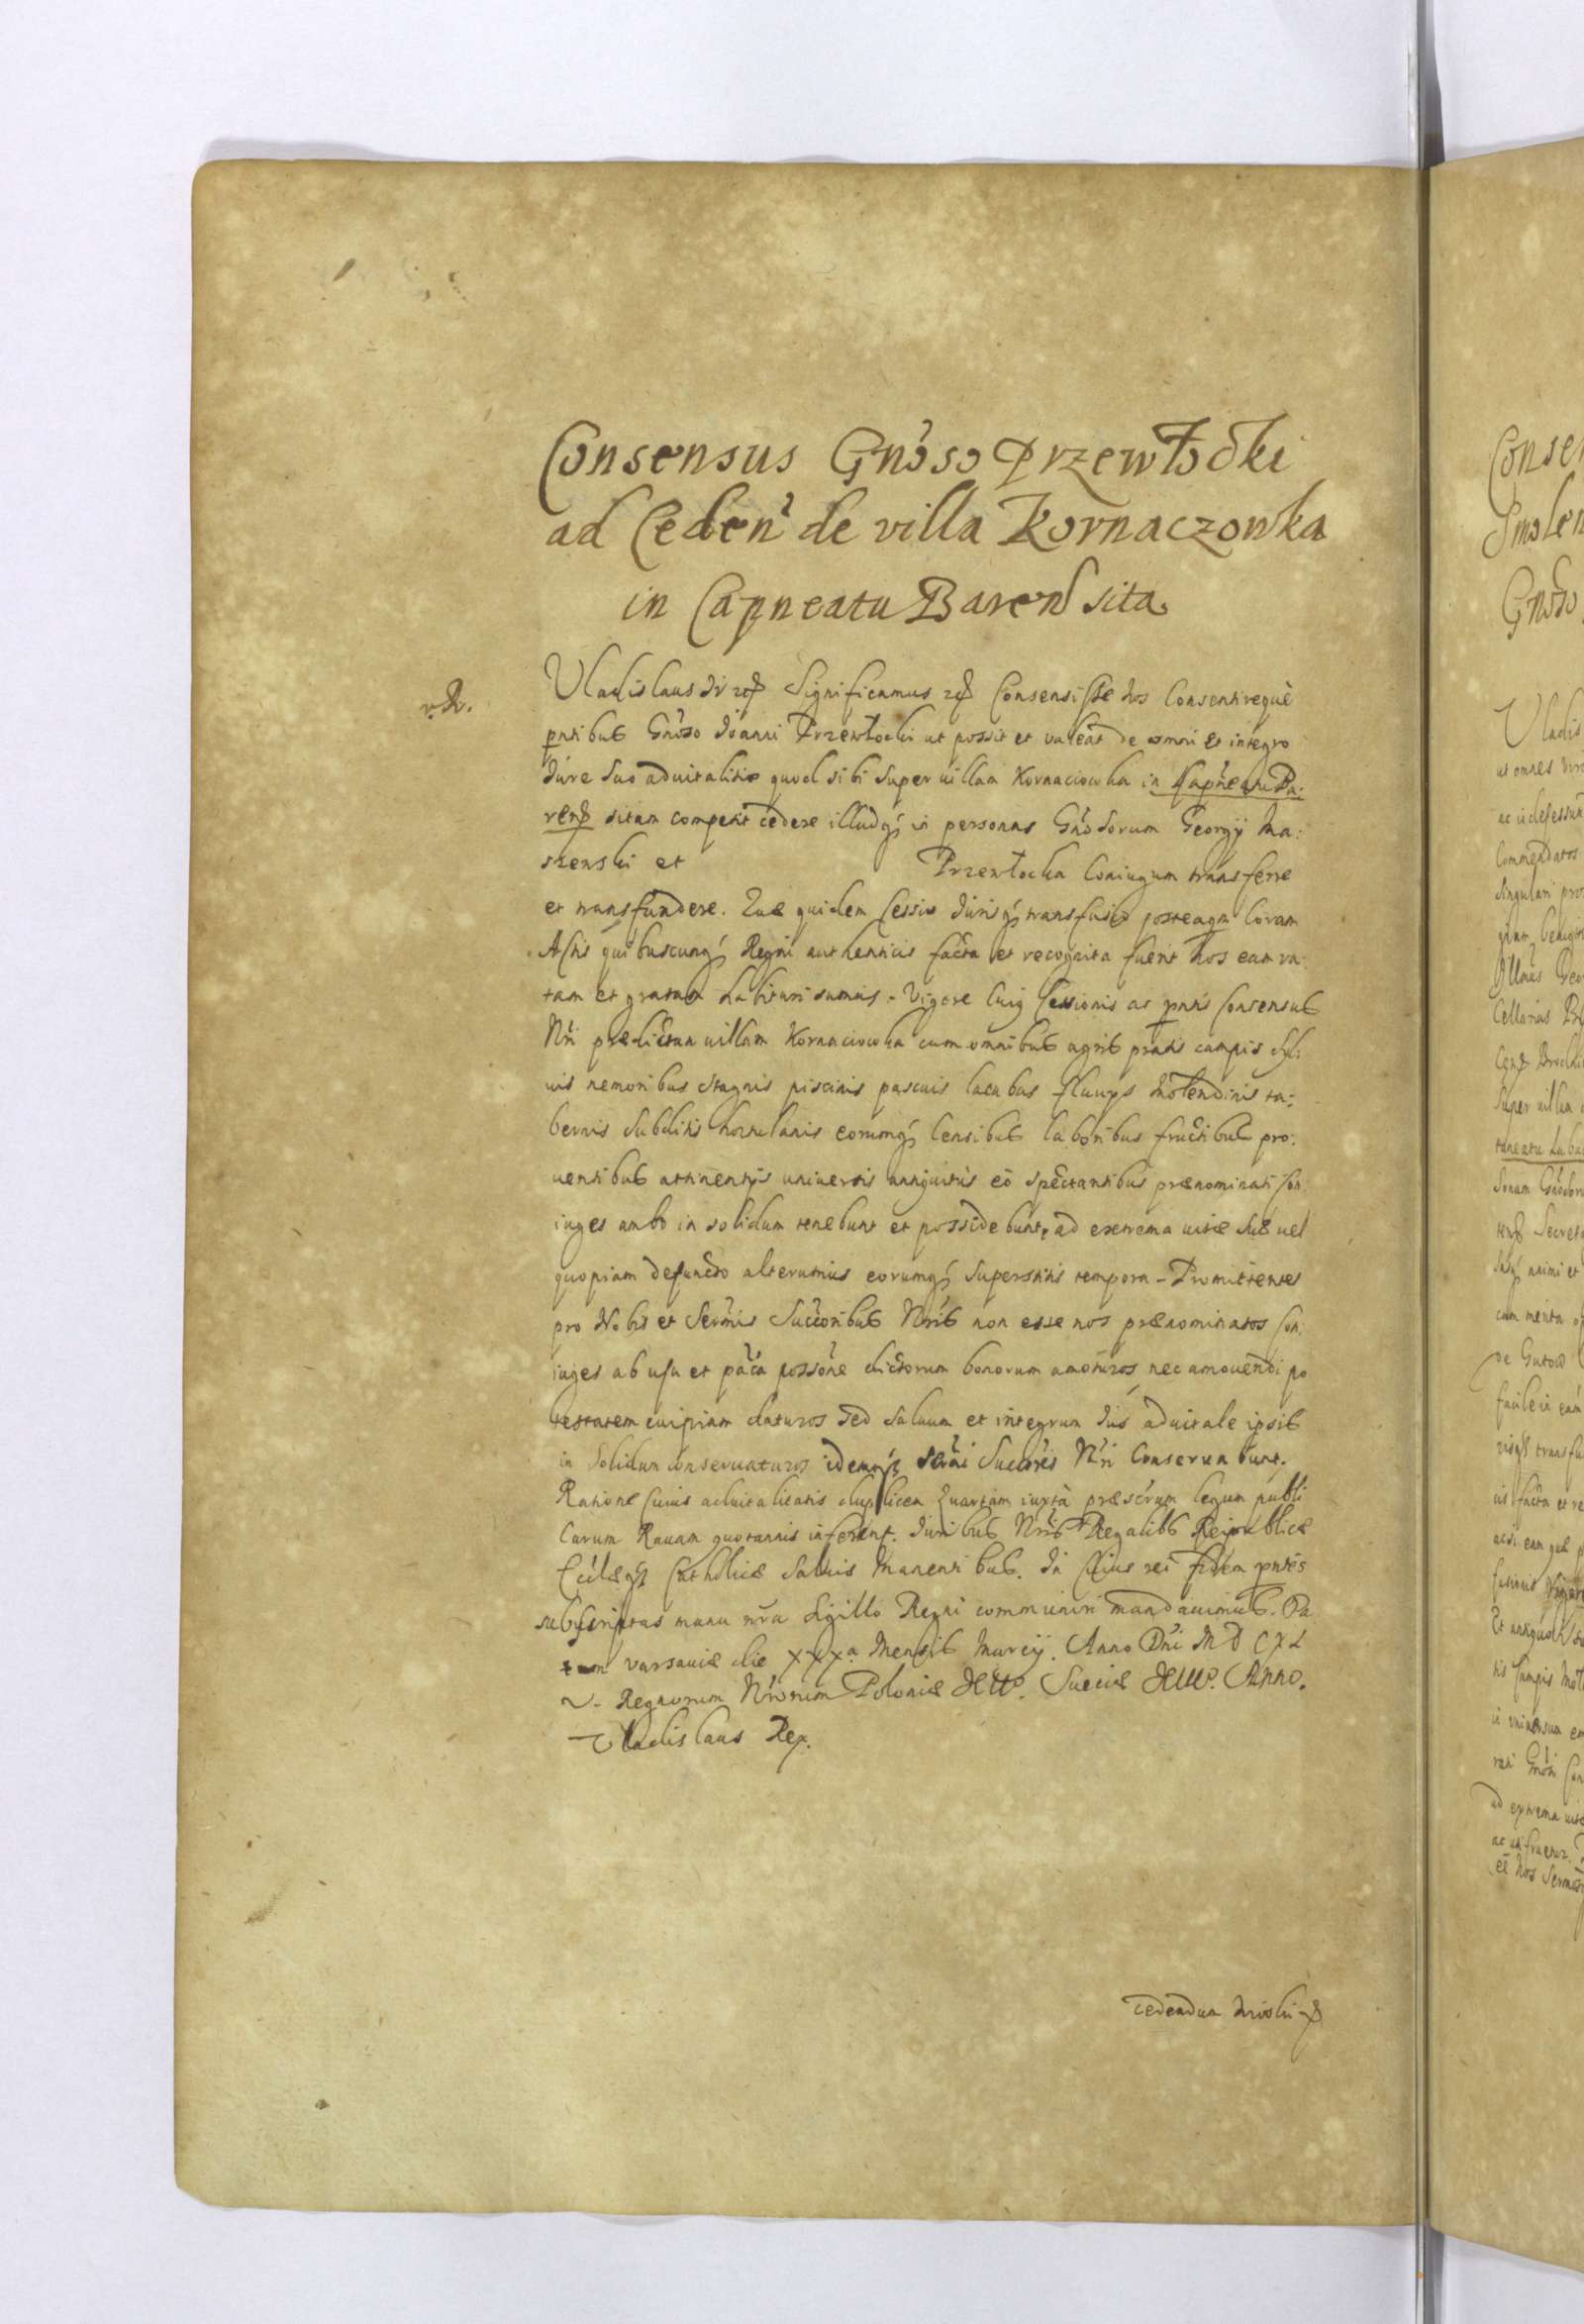 Consensus Gnoso Przewłoćki
ad Ceden de villa Kornaczowka
in Capneatu Barens sita
r. R.
Vladislaus IV etc Significamus etc Consensisse Nos Consentireque
pntibus Gnoso Joanni Przewłocki ut possit et valeat de omni et integro
Jure Suo advitalitio quod sibi Super villam Kornaciowka in Capneatu Ba:
rens sitam competit cedere illudq in personas Gnosorum Georgij Ma:
szenski et Przewłocka Coniugum transferre
et transfundere. Quae quidem Cessio Jurisq transfusio posteaqm Coram
Actis quibuscunq Regni authenticis facta et recognita fuerit Nos eam ra:
tam et gratam habituri sumus. Vigore Cuius Cessionis ac pntis Consensus
Nri praedictam villam Kornaciowka cum omnibus agris pratis campis syl:
uis nemoribus stagnis piscinis pascuis lacubus fluuijs Molendinis ta:
bernis Subditis hortulanis eorumq Censibus laboribus fructibus pro:
uentibus attinentijs universis antiquitus eo spectantibus praenominati Con:
iuges ambo in solidum tenebunt et possidebunt, ad extrema vitae Suae vel
quopiam defuncto alterutrius eorumq Superstitis tempora. Promittentes
pro Nobis et Sermis Succoribus Nris non esse nos praenominatos Con:
iuges ab usu et paca possone dictorum bonorum amoturos nec amouendi po
testatem cuipiam daturos sed Saluum et integrum Jus aduitale ipsis
in Solidum conservaturos idemq Sermi Succores Nri Conservabunt.
Ratione Cuius aduitalitatis duplicem Quartam iuxta praescrum legum publi
carum Ravam quotannis inferent. Juribus Nris Regalibs Reipublicae
Eccleaeq Catholicae Saluis Manentibus. In Cuius rei fidem pntes
subscriptas manu nra Sigillo Regni communiri mandauimus. Da
tum Varsaviae die XXXa Mensis Marcij. Anno Dni MDCXL
V. Regnorum Nrorum Poloniae XIIIo. Sueciae XIIIIo. Anno.
Vladislaus Rex.
cedendum